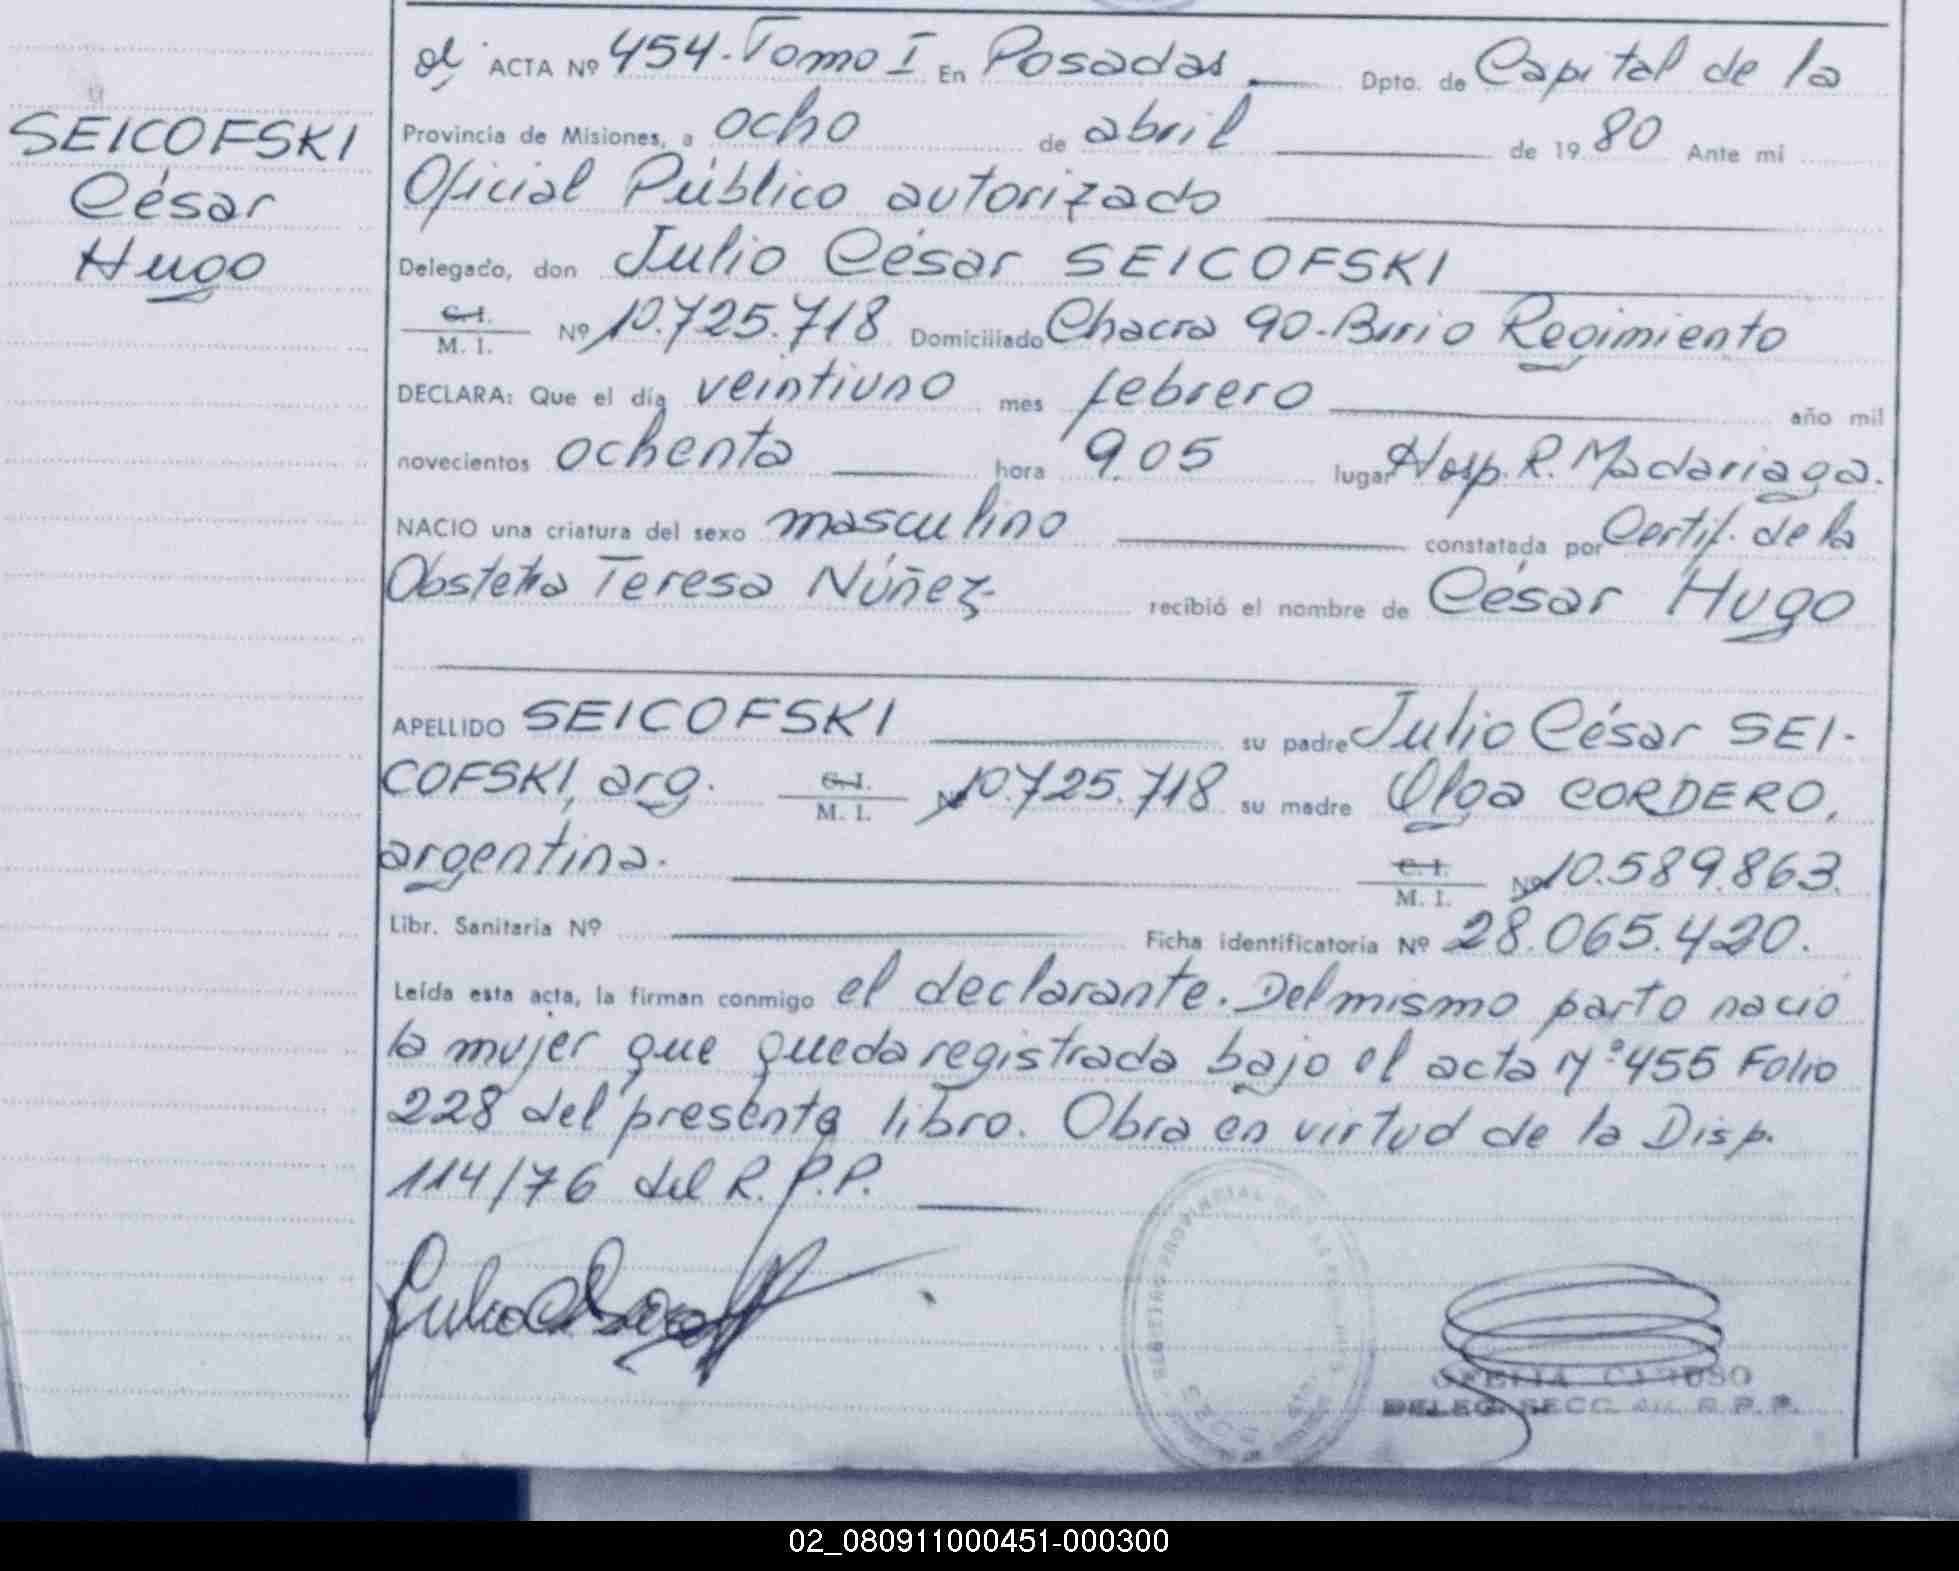 SEICOFSKI
César
Hugo
ACTA Nº 454-Tomo I En Posadas Dpto. de Capital de la
Provincia de Misiones, a ocho de abril de 1980 Ante mi
Oficial Público autorizado
Delegado, don Julio César SEICOFSKI
C.I. M. I. Nº 10.725.718 Domiciliado Chacra 90-Brrio Regimiento
DECLARA: Que el día veintiuno mes febrero año mil
novecientos ochenta hora 9.05 lugar Hosp. R. Madariaga.
NACIO una criatura del sexo masculino constatada por Certif. de la
Obstetra Teresa Núñez recibió el nombre de César Hugo
APELLIDO SEICOFSKI su padre Julio César SEI-
COFSKI, arg. C.I. M. I. Nº 10.725.718 su madre Olga CORDERO,
argentina. C.I. M. I. Nº 10.589.863.
Libr. Sanitaria Nº Ficha identificatoria Nº 28.065.420.
Leída esta acta, la firman conmigo el declarante. Del mismo parto nació
la mujer que queda registrada bajo el acta Nº 455 Folio
228 del presente libro. Obra en virtud de la Disp.
114/76 del R. P.P.
REGISTRO PROVINCIAL DE LAS
DELEG. SECC. R. P. P.
02_080911000451-000300